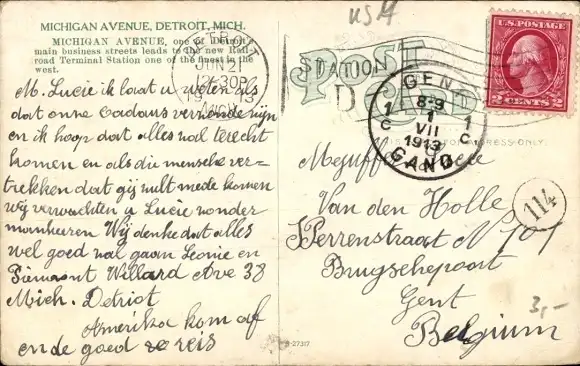 USA
MICHIGAN AVENUE, DETROIT, MICH.
MICHIGAN AVENUE, one of Detroit's
main business streets leads to the new Rail-
road Terminal Station one of the finest in the
west.
DETROIT
JUN 21
12 30P
1913
MICH.
STATION
D
POST CARD
U.S. POSTAGE
2 CENTS 2
GENT
1 8-9 1
C 1 C
VII
1913
GAND
ADDRESS ONLY.
M. Lucie ik laat u weten als
dat onze Cadaus verzonde zijn
en ik hoop dat alles wal terecht
komen en als die mensche ver-
trekken dat gij zult mede komen
wij verwachten u Lucie zonder
mankeeren Wij denke dat alles
wel goed zal gaan Leonie en
Piemont Willard Ave 38
Mich. Detriot
Amerika kom af
en de goed reis
Mejuff Lucie
Van den Holle
Perrenstraat N 101
Brugschepoort
Gent
Belgium
114
3,-
B-27317